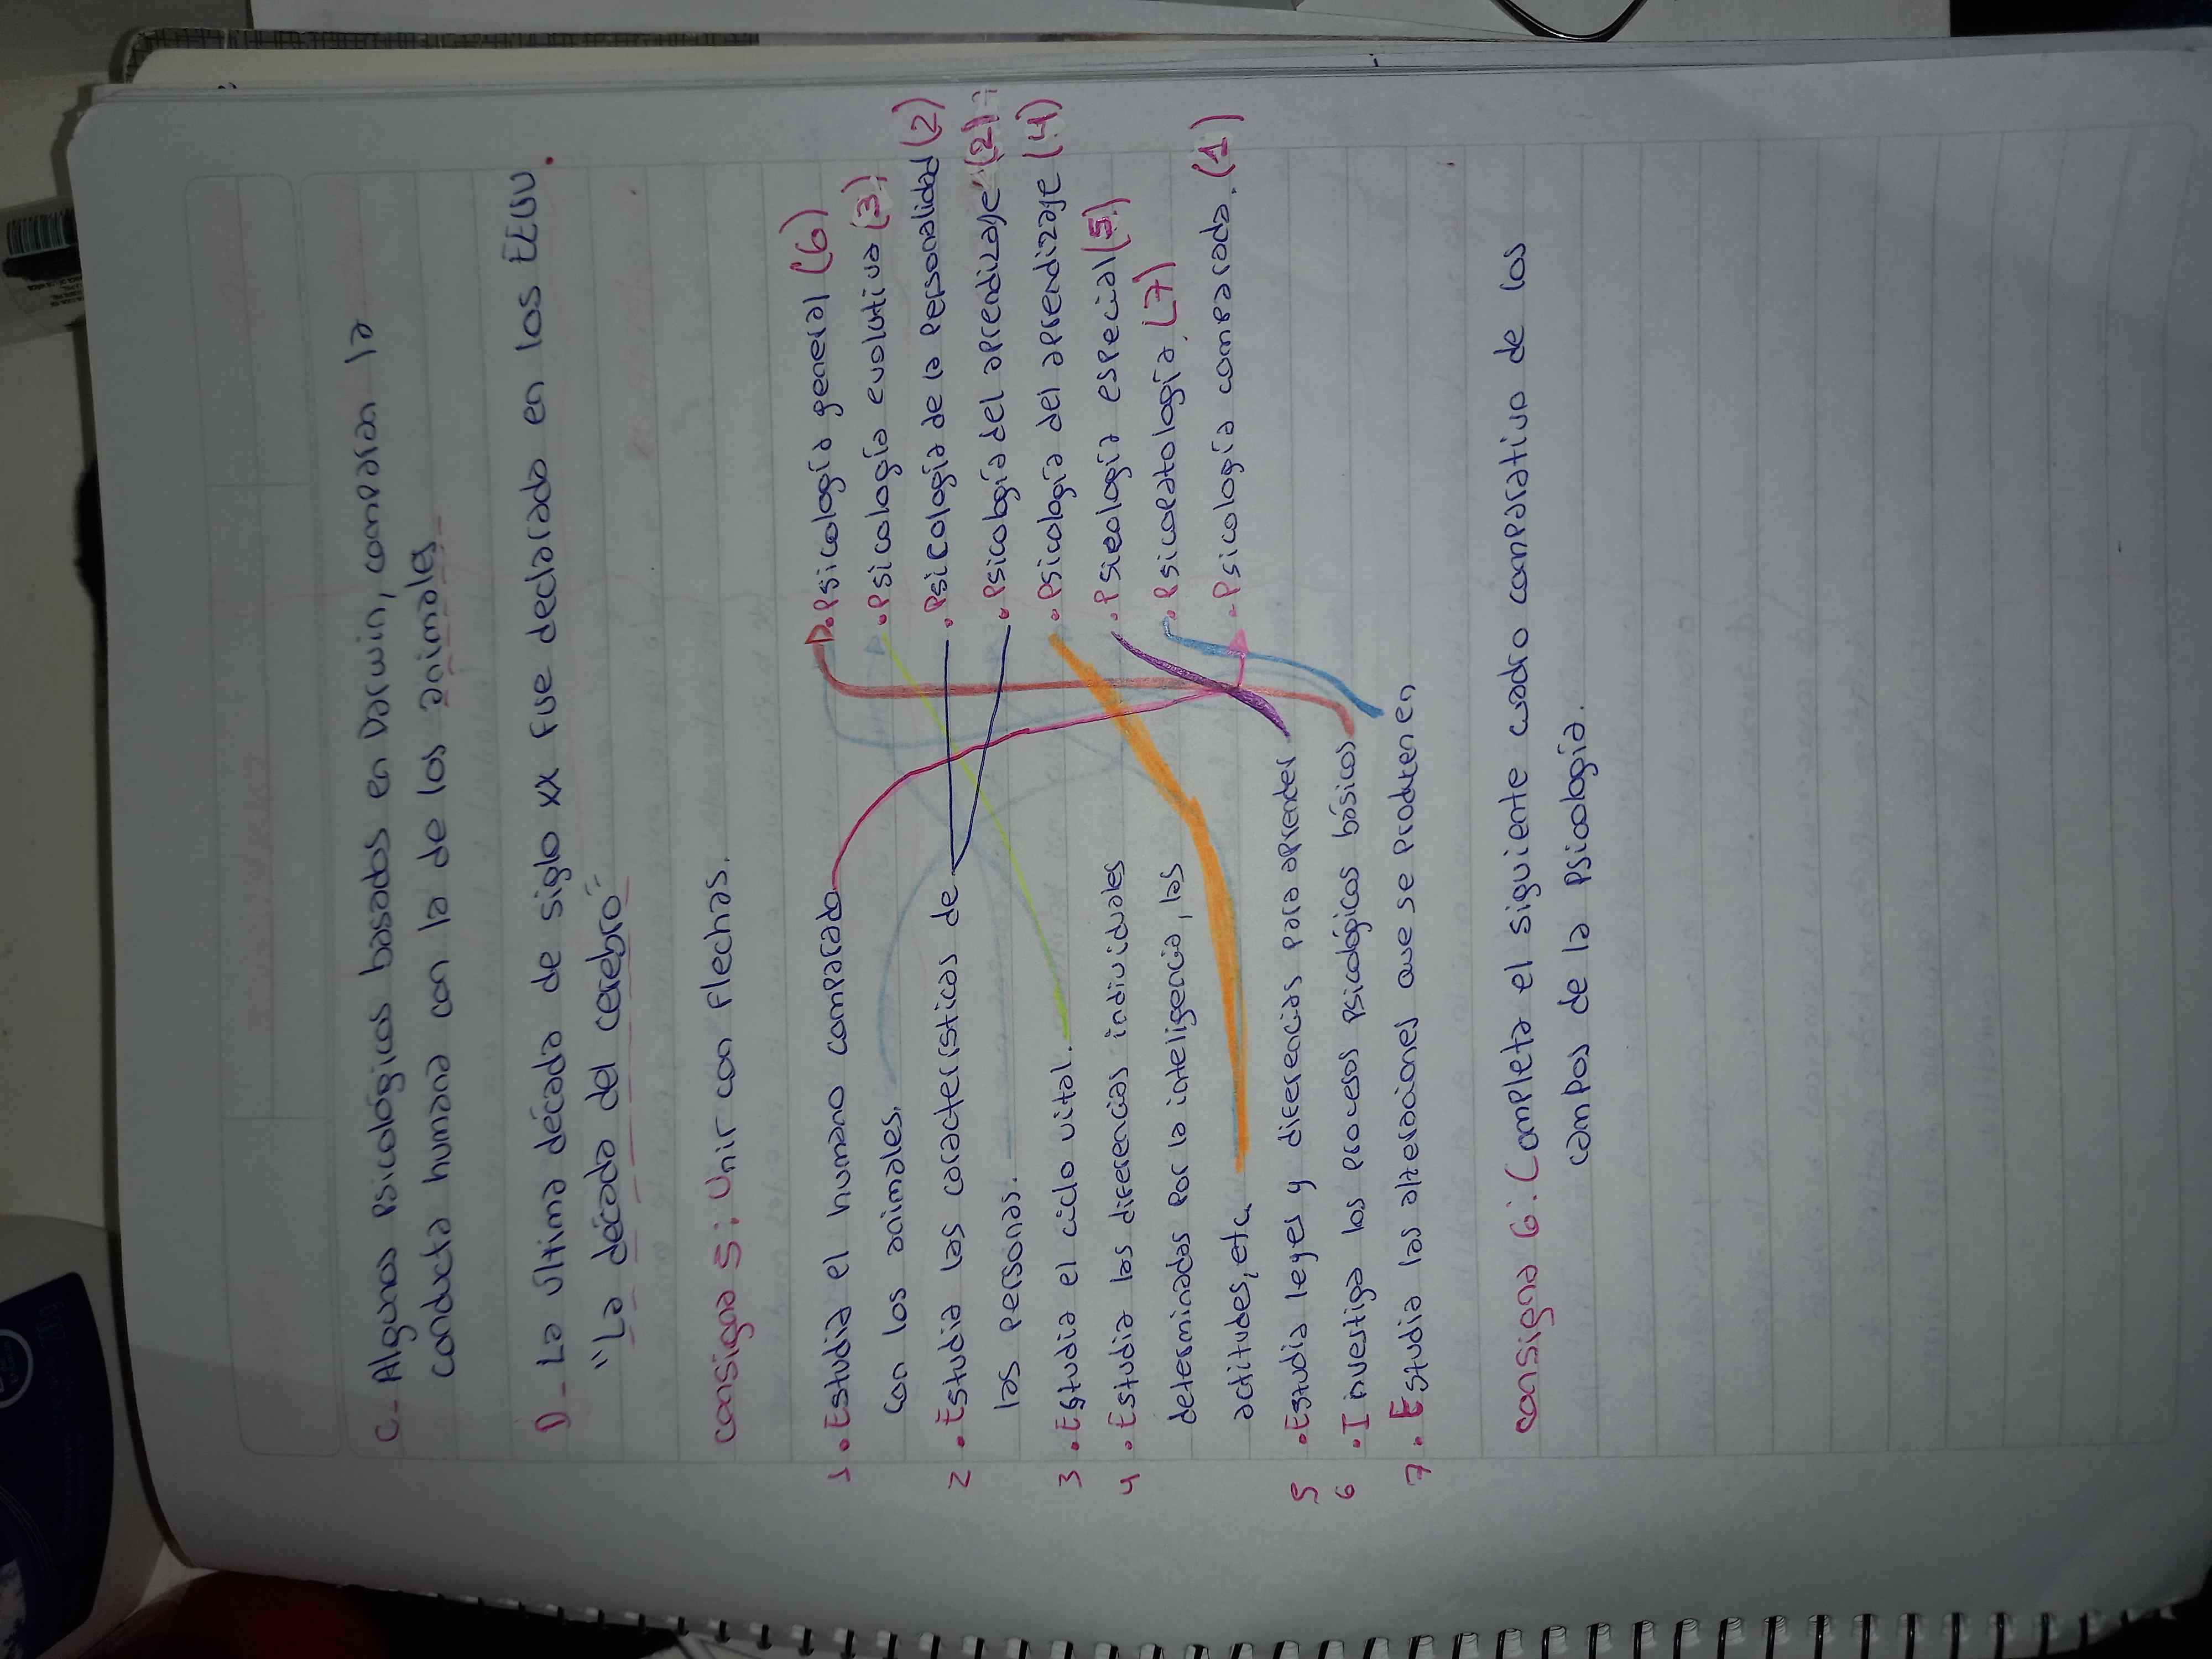 C- Algunos Psicológicos basados en Darwin, comparan la
conducta humana con la de los animales
D- La última década de siglo xx fue declarada en los EEUU.
"La década del cerebro"
consigna 5: Unir con flechas.
1 • Estudia el humano comparado
con los animales.
2 • Estudia las características de
las personas.
3 • Estudia el ciclo vital.
4 • Estudia las diferencias individuales
determinadas por la inteligencia, las
actitudes, etc.
5 • Estudia leyes y diferencias para aprender
6 • Investiga los procesos Psicológicos básicos
7 • Estudia las alteraciones que se producen en
• Psicología general (6)
• Psicología evolutiva (3)
• Psicología de la personalidad (2)
• Psicología del aprendizaje (2)
• Psicología del aprendizaje (4)
• Psicología especial (5)
• Psicopatología. (7)
• Psicología comparada. (1)
consigna 6: Completa el siguiente cuadro comparativo de los
campos de la psicología.